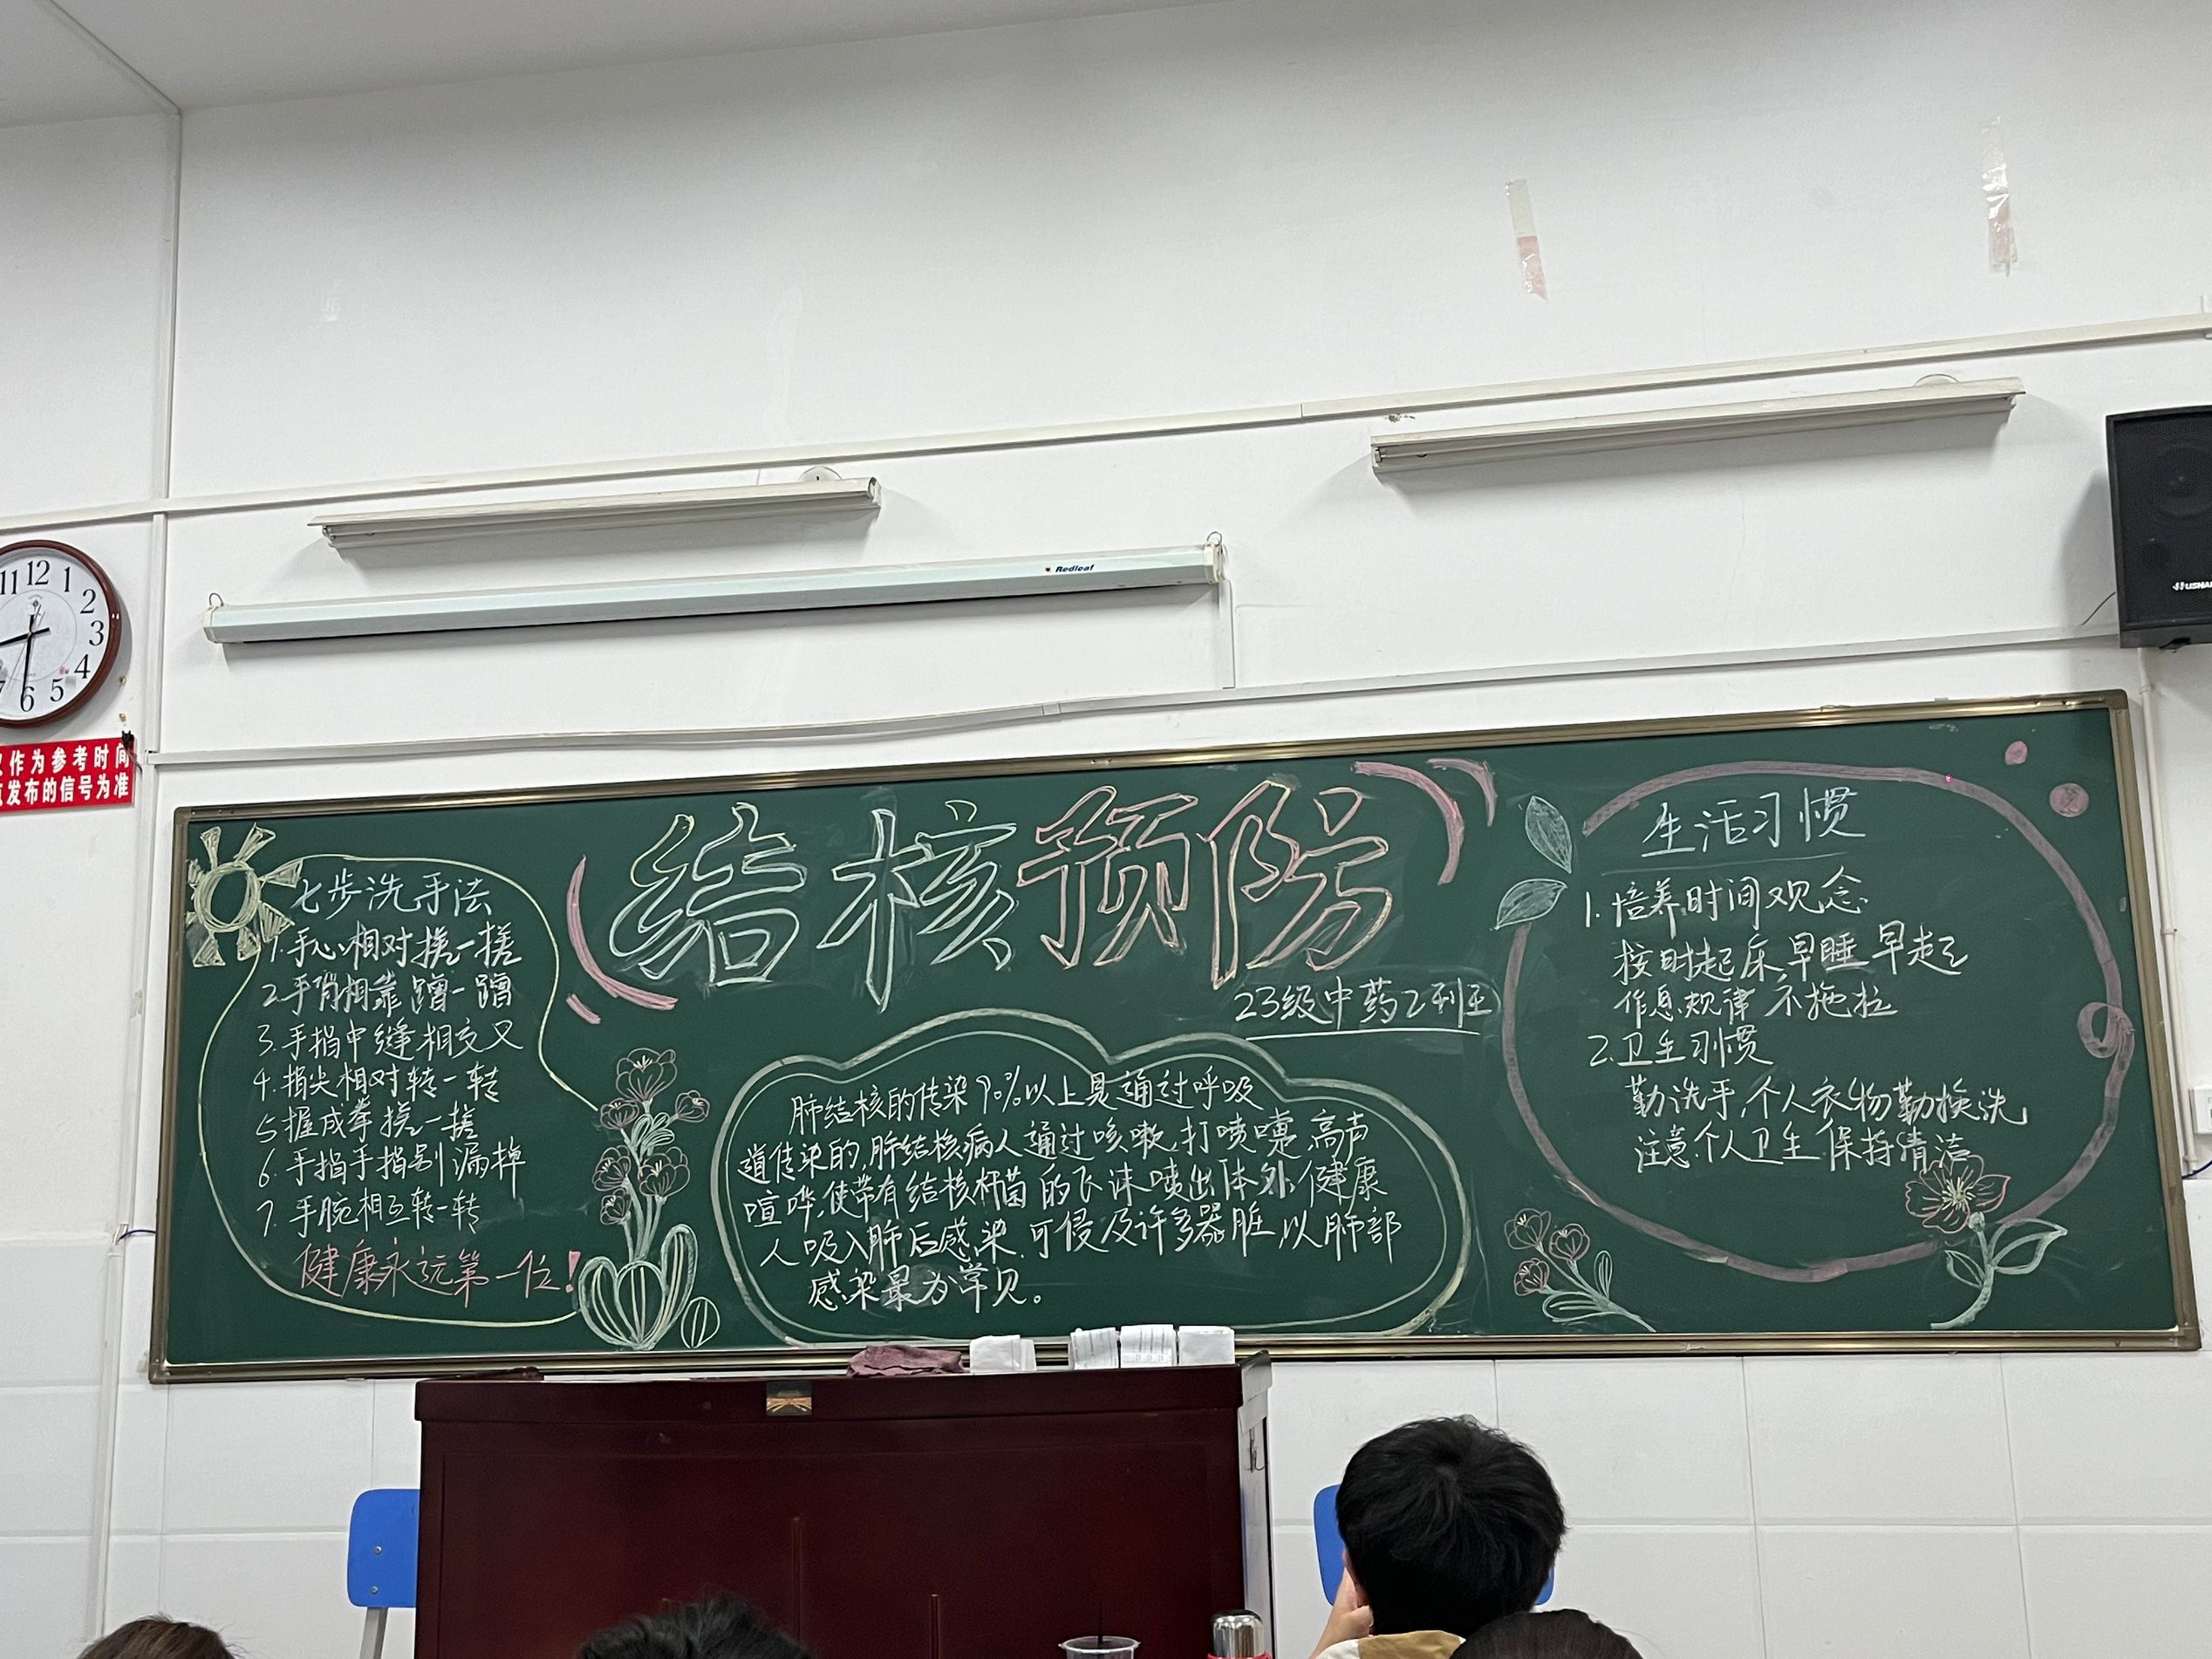 11 12 1
2
3
4
5
6
7
Redleaf
作为参考时间
发布的信号为准
结核预防
23级中药乙刊班
七步洗手法
1.手心相对搓一搓
2.手背相靠蹭一蹭
3.手指中缝相交叉
4.指尖相对转一转
5.握成拳搓一搓
6.手指手指别漏掉
7.手腕相互转一转
健康永远第一位!
肺结核的传染90%以上是通过呼吸
道传染的,肺结核病人通过咳嗽,打喷嚏,高声
喧哗,使带有结核杆菌的飞沫喷出体外,健康
人吸入肺后感染.可侵及许多器脏,以肺部
感染最为常见。
生活习惯
1.培养时间观念
按时起床,早睡早起
作息规律 不拖拉
2.卫生习惯
勤洗手,个人衣物勤换洗
注意个人卫生,保持清洁